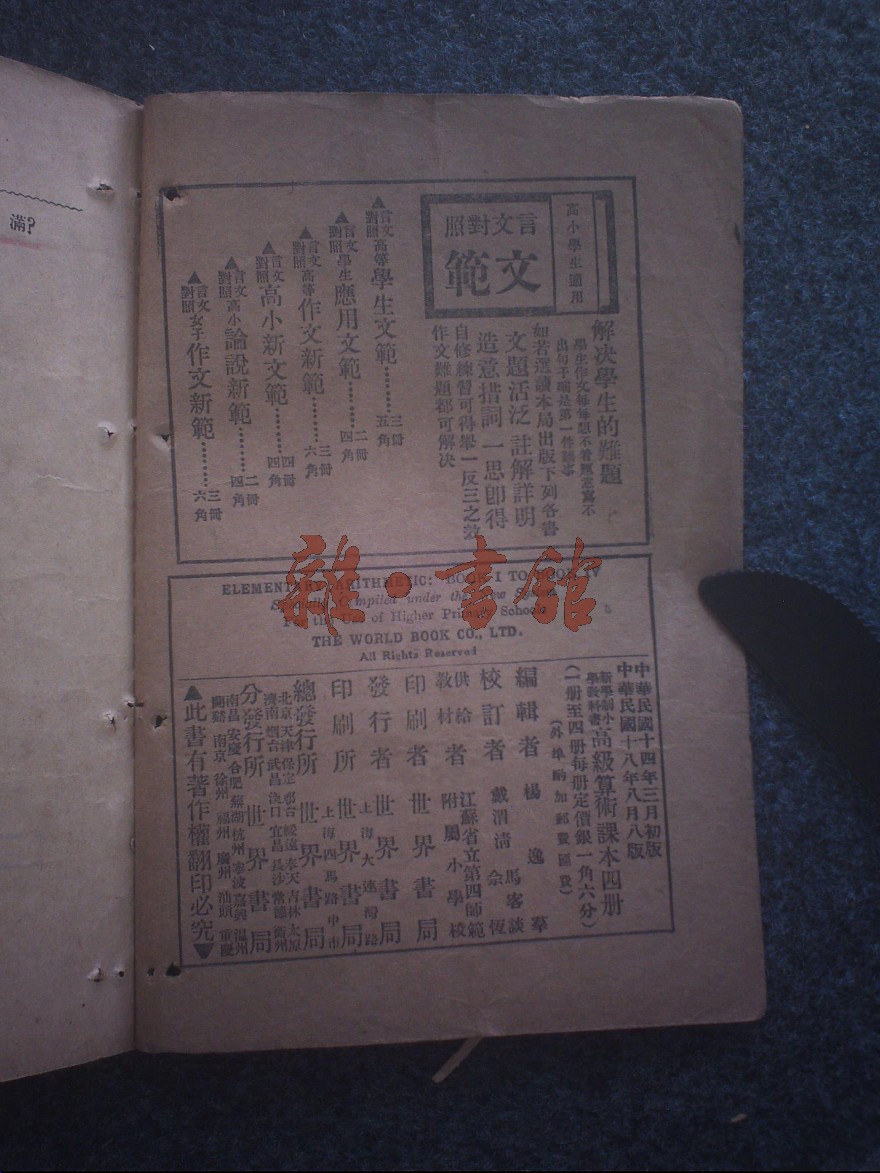 滿?
高小學生適用
言文對照
文範
解決學生的難題
學生作文每每想不着題意寫不
出句子確是第一件難事
如若選讀本局出版下列各書
文題活泛 註解詳明
造意措詞 一思卽得
自修練習可得舉一反三之效
作文難題都可解決
▲言文對照高等學生文範………三冊五角
▲言文對照學生應用文範………二冊四角
▲言文對照高等作文新範………三冊六角
▲言文對照高小新文範………四冊四角
▲言文對照高小論說新範………二冊四角
▲言文對照女子作文新範………三冊六角
雜·書館
ELEMENTARY ARITHMETIC: BOOK I TO BOOK IV
under the New
For the Use of Higher Primary Schools
THE WORLD BOOK CO., LTD.
All Rights Reserved
中華民國十四年三月初版
中華民國十八年八月八版
新學制小學教科書高級算術課本四册
(一册至四册每册定價銀一角六分)
(外埠酌加郵費匯費)
編輯者 楊逸羣
校訂者 戴渭清 馬客談 佘恆
供給教材者 江蘇省立第四師範附屬小學校
印刷者 世界書局
發行者 世界書局
印刷所 上海大連灣路 世界書局
總發行所 上海四馬路中市 世界書局
分發行所 世界書局
北京 天津 保定 邢台 綏遠 奉天 吉林 太原
濟南 烟台 武昌 漢口 宜昌 長沙 常德 衢州
南昌 安慶 合肥 蕪湖 杭州 寧波 嘉興 温州
蘭谿 南京 徐州 福州 廣州 汕頭 重慶
▲此書有著作權翻印必究▼